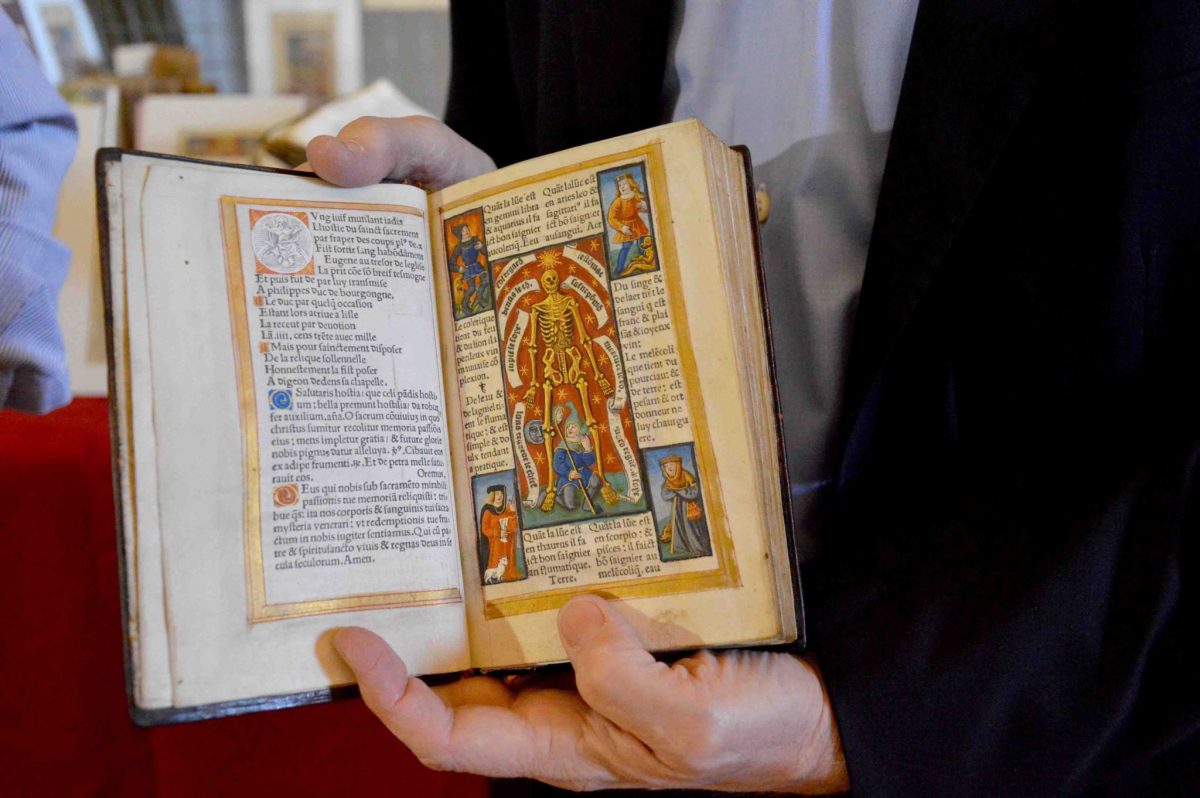 Vng iuif mutilant iadis
Lhostie du sainct sacrement
par fraper des coups plꝰ de.x
Fist sortir sang habōdāment
Eugene au tresor de leglise
La prit cōe sō breif tesmogne
Et puis fut de par luy transmise
A philippes duc de bourgongne.
Le duc par quelq̄ occasion
Estant lors arriue a lisle
La receut par deuotion
Lā.iiii. cens trēte auec mille
Mais pour sainctement disposer
De la relique sollennelle
Honnestement la fist poser
A digeon dedens sa chapelle.
O Salutaris hostia: que celi pādis hosti
um: bella premunt hostilia: da robur
fer auxilium. añ. O sacrum cōuiuius in quo
christus sumitur recolitur memoria passionis
eius: mens impletur gratia: & future glorie
nobis pignus datur alleluya. Cibauit eos
ex adipe frumenti. Et de petra melle satu
rauit eos. Oremus.
Deus qui nobis sub sacramēto mirabili
passionis tue memoriā reliquisti: tri
bue q̄s: ita nos corporis & sanguinis tui sacra
mysteria venerari: vt redemptionis tue fru
ctum in nobis iugiter sentiamus. Qui cū pa
tre & spiritusancto viuis & regnas deus in
cula seculorum. Amen.
Quāt la lūe est
en gemini libra
& aquarius il fa
ict bon saignier
aucolerиq̄. Eeu
Quāt la lūe est
en aries leo &
sagittariꝰ il fa
ict bō saignier
ausangui. Aer
Le colerique
tient du feu
& du lion il a
perileux vin
mauuaise cō
plexion.
Du singe &
de laer tiēt le
sangui q est
franc & plai
sāt & ioyeux
vin:
De leau &
de lagniel ti
ent le fluma
tique: & est
simple & do
ulx tendant
a pratique.
Le melēcoli
que tient du
pourciau: &
de terre: est
pesant & ort
donneur ne
luy chaurgu
erre.
Quāt la lūe est
en thaurus il fa
ict bon saignier
an flumatique.
Terre.
Quāt la lūe est
en scorpio: &
pisces: il faict
bō saignier au
melēcoliq̄. eau